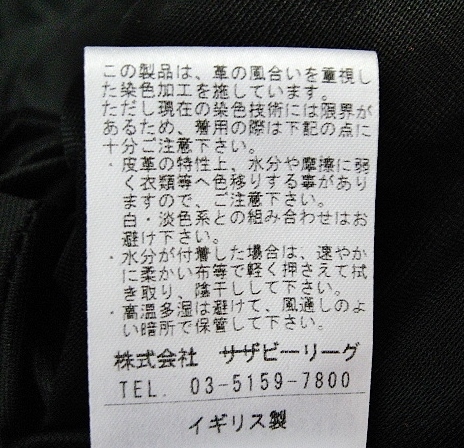 この製品は、革の風合いを重視し
た染色加工を施しています。
ただし現在の染色技術には限界が
あるため、着用の際は下記の点に
十分ご注意下さい。
・皮革の特性上、水分や摩擦に弱
く衣類等へ色移りする事があり
ますので、ご注意下さい。
白・淡色系との組み合わせはお
避け下さい。
・水分が付着した場合は、速やか
に柔かい布等で軽く押さえて拭
き取り、陰干しして下さい。
・高温多湿は避けて、風通しのよ
い暗所で保管して下さい。
株式会社 サザビーリーグ
TEL. 03-5159-7800
イギリス製